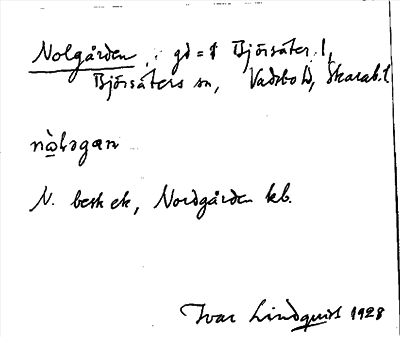 Nolgården, gd = i Björsäter 1,
Björsäters sn, Vadsbo hd, Skarab. l
nò̱lᴈgan
N. besk ek, Nordgården kb.
Ivar Lindquist 1928